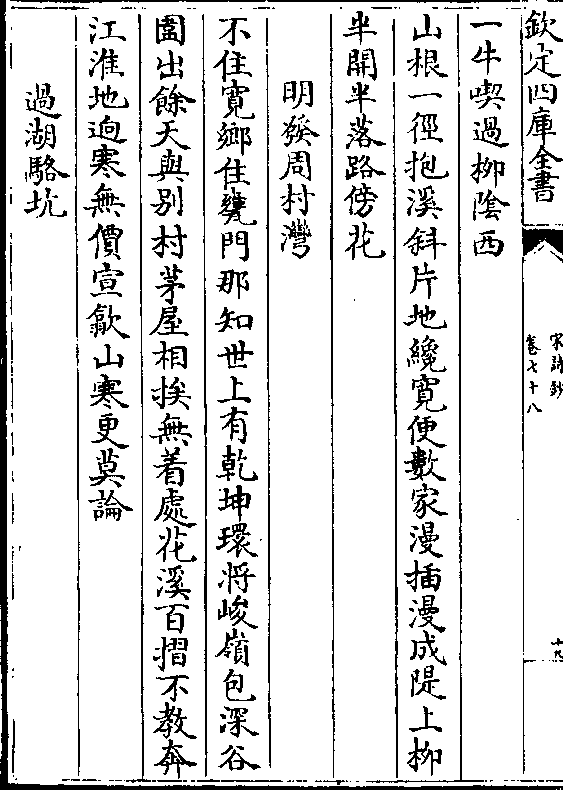 欽定四庫全書
宋詩鈔
卷七十八
十九
一牛喫過柳隂西
山根一徑抱溪斜片地纔寛便數家漫插漫成隄上柳
半開半落路傍花
明發周村灣
不住寛鄉住甕門那知世上有乾坤環将峻嶺包深谷
圍出餘天與别村茅屋相挨無着處花溪百摺不教奔
江淮地逈寒無價宣歙山寒更莫論
過湖駱坑